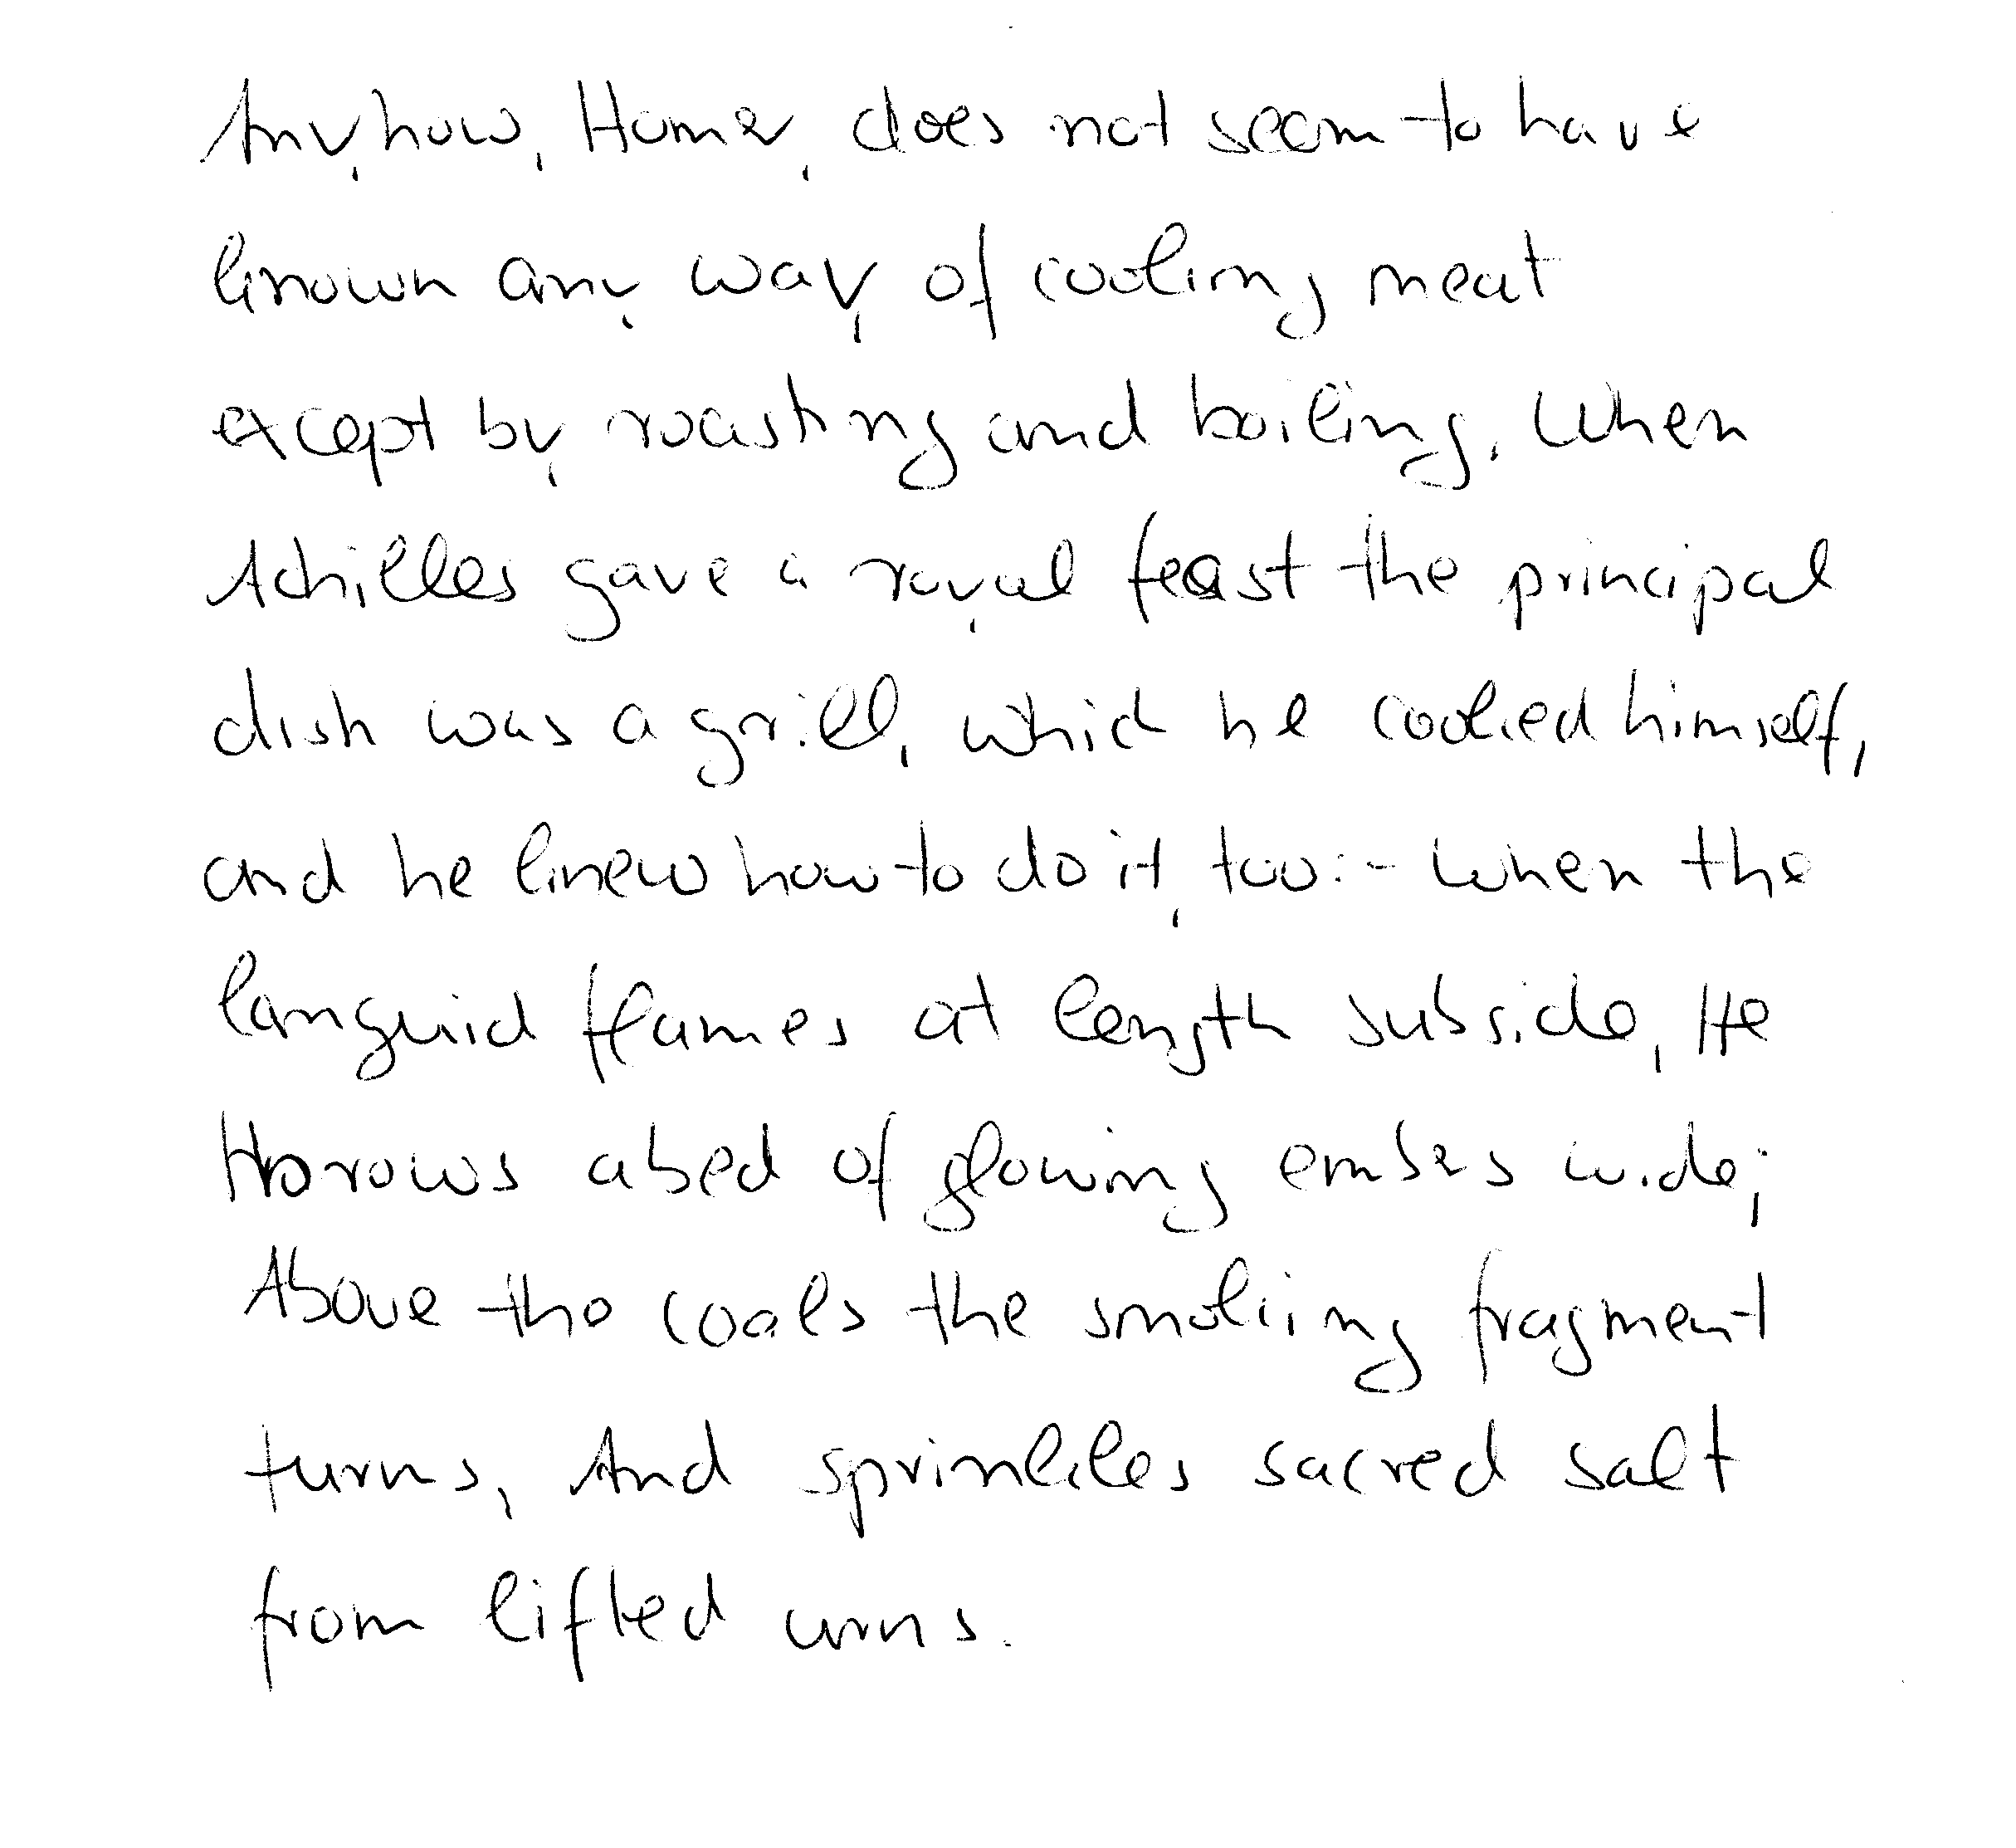 Anyhow, Homer, does not seem to have
known any way of cooking meat
except by roasting and boiling. When
Achilles gave a royal feast the principal
dish was a grill, which he cooked himself,
and he knew how to do it, too:- When the
languid flames at length subside, He
throws a bed of glowing embers wide;
Above the coals the smoking fragment
turns, And sprinkles sacred salt
from lifted urns.